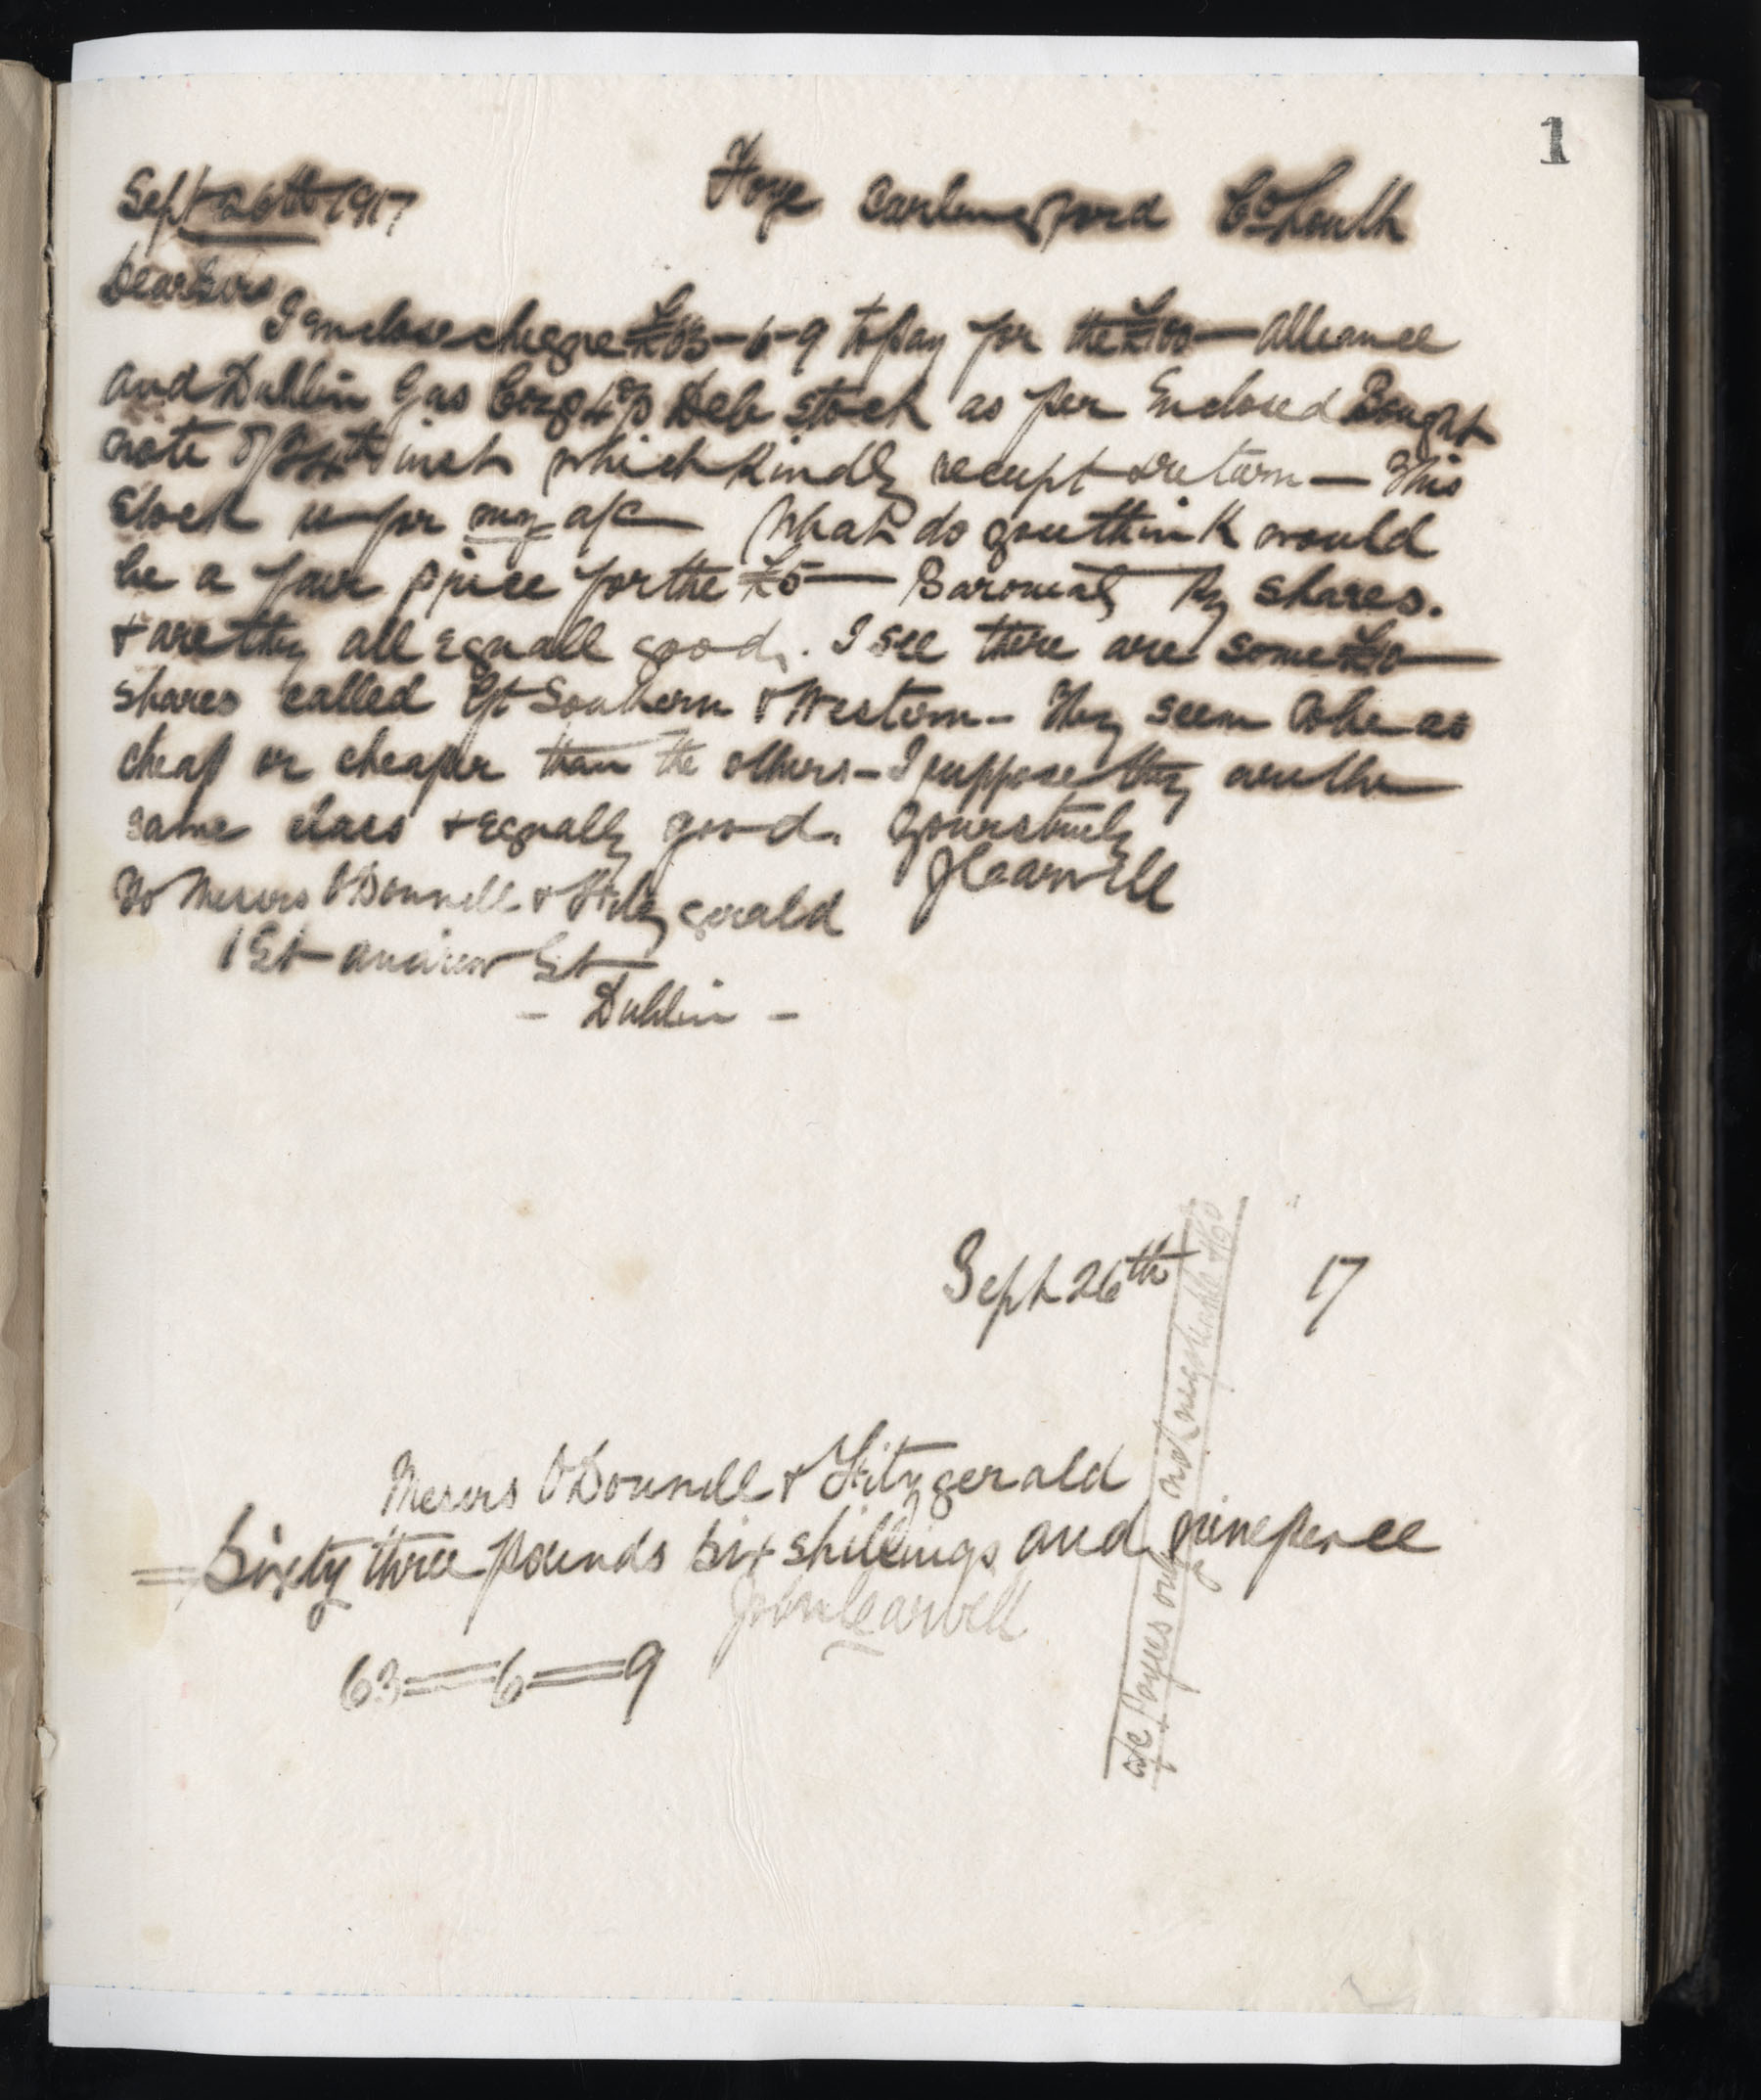 1
Sept 26th 1917 Foye Carlingford Co Louth
Dear Sirs
I enclose cheque £63-6-9 to pay for the £100 — Alliance
and Dublin Gas Coys 4% Deb stock as per Enclosed Bought
note of 24th inst which kindly receipt & return — This
stock is for my a/c — What do you think would
be a fair price for the £5 — Baronial Ry shares.
& are they all equall good. I see there are some £10 —
shares called Gt Southern & Western - They seem to be as
cheap or cheaper than the others - I suppose they are the
same class & equally good. Yours truly
J Carvill
To Messrs O'Donnell & Fitzgerald
1 St Andrew St
- Dublin -
Sept 26th 17
Messrs O'Donnell & Fitzgerald
= Sixty three pounds six shillings and ninepence
John Carvill
63=6=9
a/c Payees only not negotiable & Co